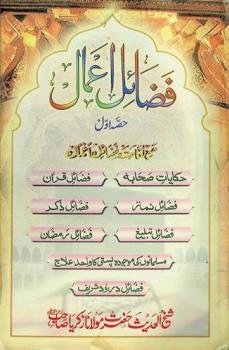 فضائل اعمال
حصہ اول
حکایات صحابہ
فضائل قرآن
فضائل نماز
فضائل ذکر
فضائل تبلیغ
فضائل رمضان
مسلمانوں کی موجودہ پستی کا واحد علاج
فضائل درود شریف
شیخ الحدیث حضرت مولانا زکریا صاحب